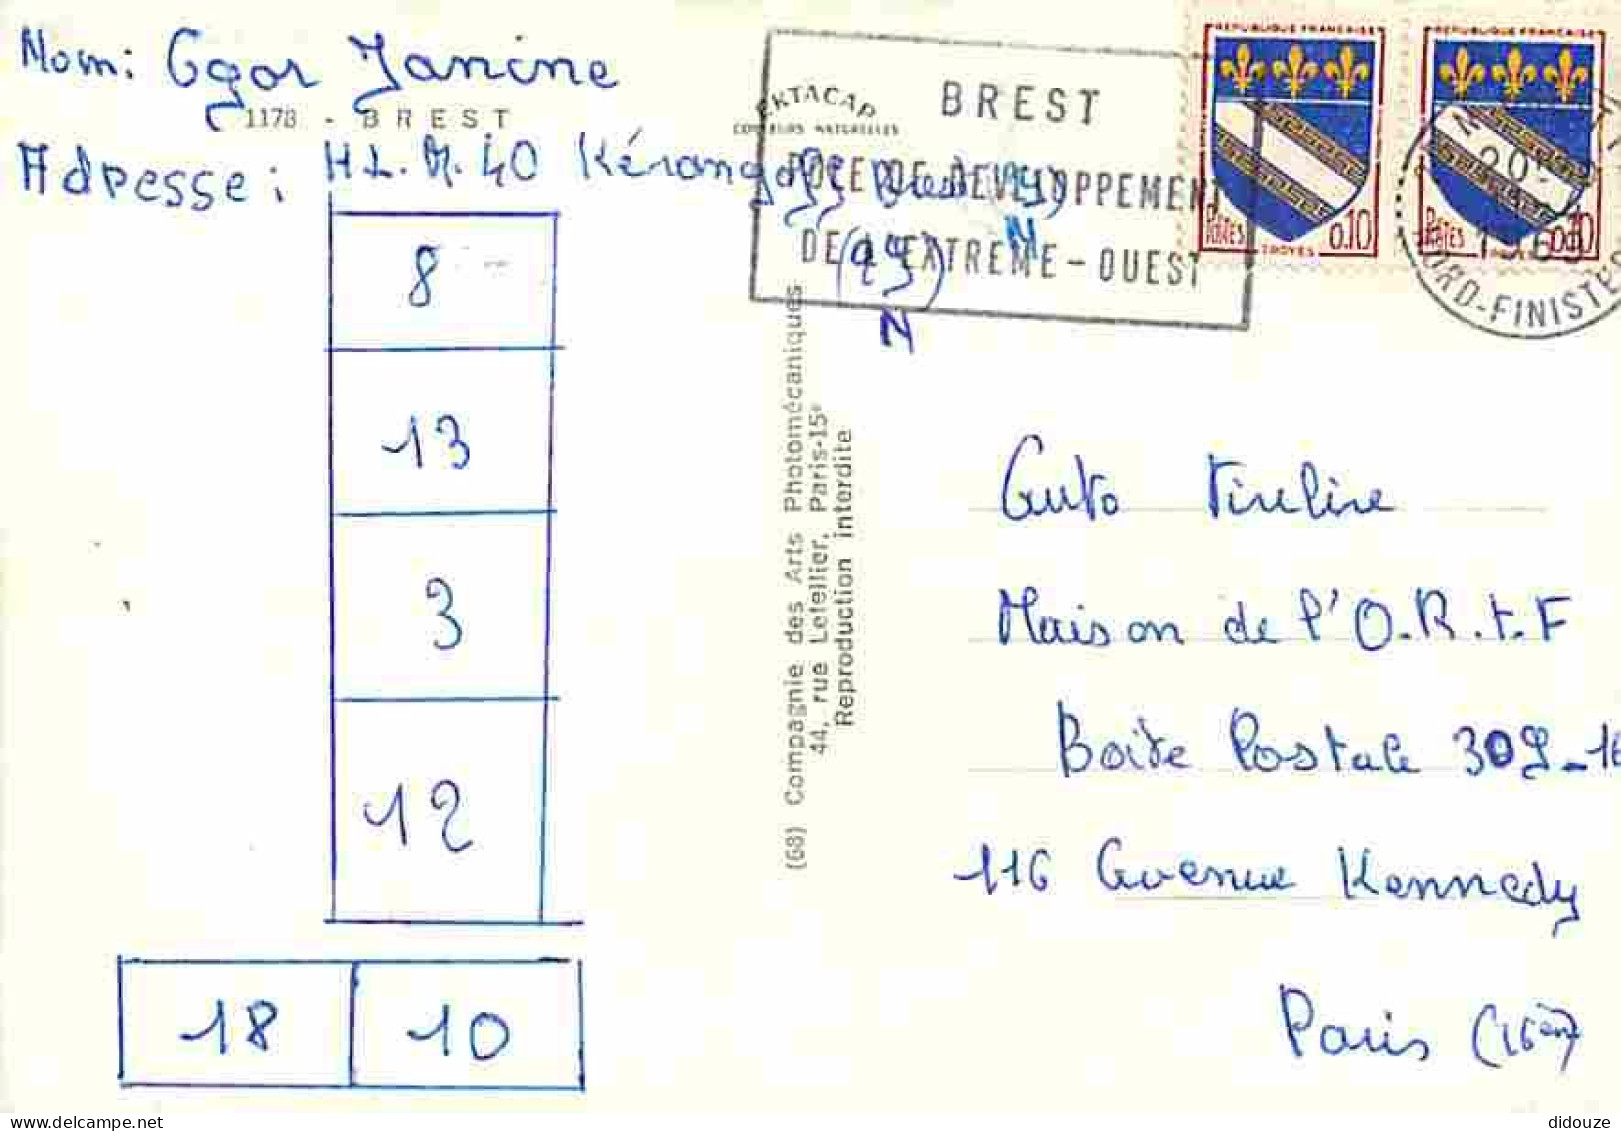 Nom: Ggor Janine
1173 - BREST
Adresse: H.L.M. 40 Kérangoff Brest (29)
N
(29)
N
EKTACAP
COULEURS NATURELLES
BREST
POLE DE DEVELOPPEMENT
DE L'EXTREME-OUEST
REPUBLIQUE FRANCAISE
POSTES 0,10
TROYES
REPUBLIQUE FRANCAISE
POSTES 0,10
TROYES
NORD-FINISTERE
8
13
3
12
18 10
(68) Compagnie des Arts Photomécaniques
44, rue Letellier, Paris-15e
Reproduction interdite
Auto Tirelire
Maison de l'O.R.T.F
Boite Postale 309-16
116 Avenue Kennedy
Paris (16ème)
didouze